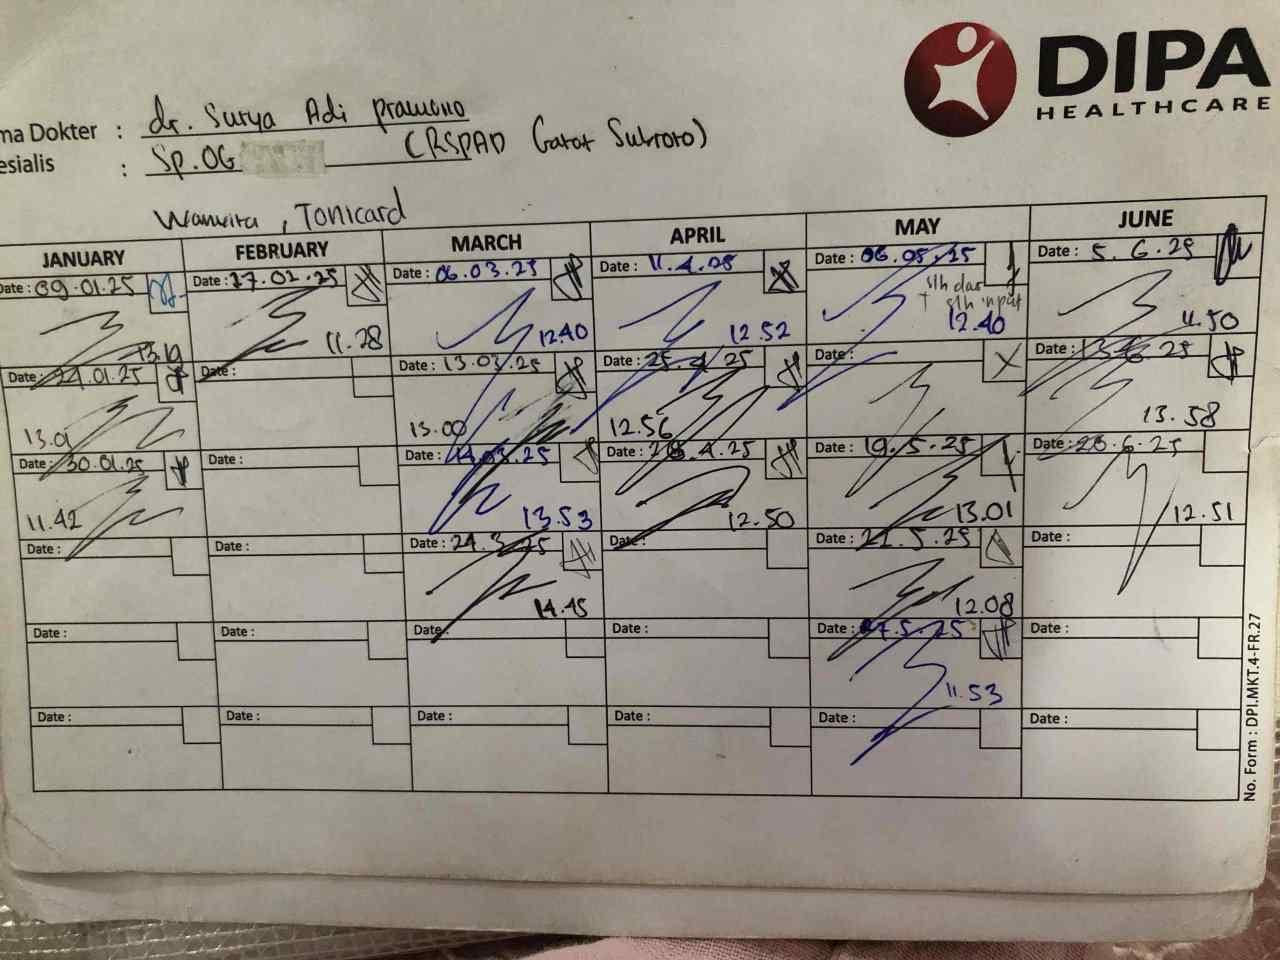 DIPA
HEALTHCARE
ma Dokter : dr. Surya Adi Pramono
esialis : Sp.OG (RSPAD Gatot Subroto)
Wanvita, Tonicard
JANUARY FEBRUARY MARCH APRIL MAY JUNE
Date: 09.01.25 Date: 17.02.25 Date: 06.03.25 Date: 11.4.25 Date: 06.05.25 Date: 5.6.25
slh dar
slh input
13.19 11.28 12.40 12.52 12.40 11.50
Date: 24.01.25 Date: Date: 13.03.25 Date: 25.4.25 Date: Date: 13.6.25
13.01 13.00 12.56 13.58
Date: 30.01.25 Date: Date: 14.03.25 Date: 28.4.25 Date: 19.5.25 Date: 26.6.25
11.42 13.53 12.50 13.01 12.51
Date: Date: Date: 24.3.25 Date: Date: 21.5.25 Date:
14.45 12.08
Date: Date: Date: Date: Date: 27.5.25 Date:
11.53
Date: Date: Date: Date: Date: Date:
No. Form : DPI.MKT.4-FR.27